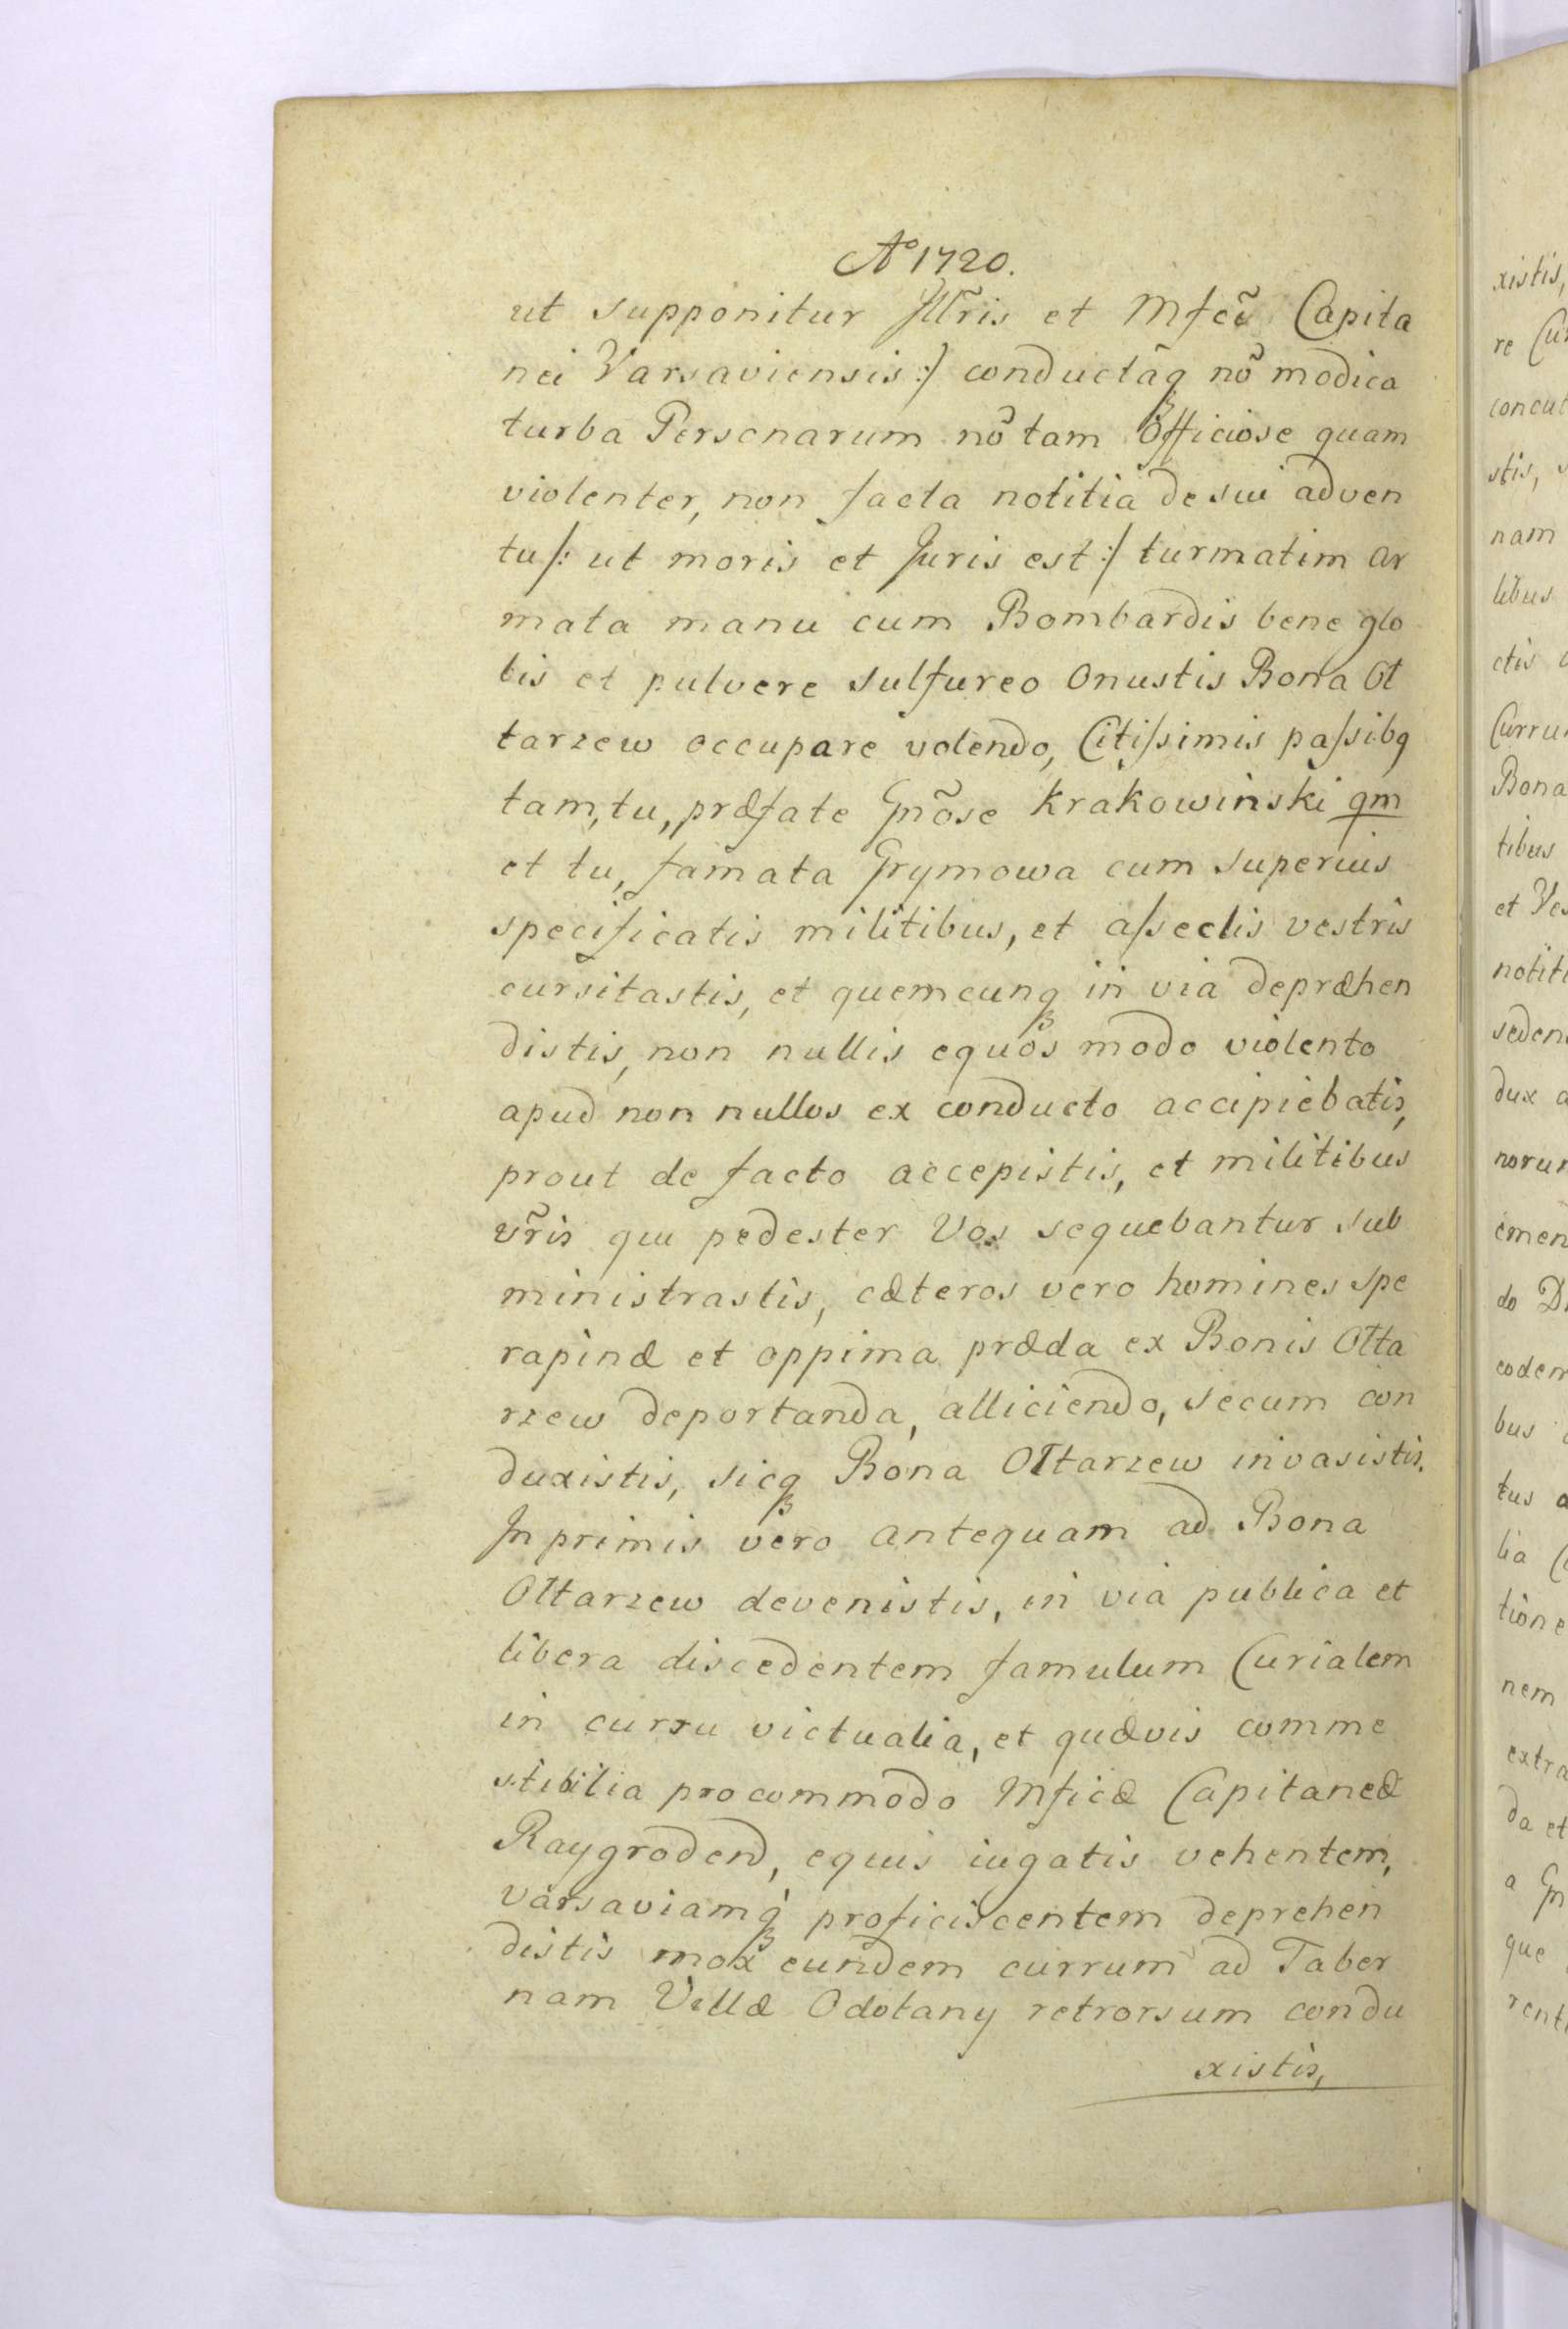 Aº 1720.
ut supponitur Jllr̃is et Mfcĩ Capita
nei Varsaviensis :/ conductãq́ꝫ nõ modica
turba Personarum nõ tam Officiose quam
violenter, non facta notitia de sui adven
tu /: ut moris et Juris est :/ turmatim ar
mata manu cum Bombardis bene glo
bis et pulvere sulfureo onustis Bona Ot
tarzew occupare volendo, Citiſsimis paſsibq
tam, tu, præfate Gnõse Krakowinski qm
et tu, famata Grymowa cum superius
specificatis militibus, et aſseclis vestris
cursitastis, et quemcunqꝫ in via depræhen
distis, non nullis equos modo violento
apud non nullos ex conducto accipiebatis,
prout de facto accepistis, et militibus
vr̃is qui pedester Vos sequebantur sub
ministrastis, cæteros vero homines spe
rapinæ et oppima præda ex Bonis Otta
rzew deportanda, alliciendo, secum con
duxistis, sicqꝫ Bona Ottarzew invasistis.
Jn primis vero antequam ad Bona
Ottarzew devenistis, in via publica et
libera discedentem famulum Curialem
in curru victualia, et quævis comme
stibilia pro commodo Mficæ Capitaneæ
Raygrodend, equis iugatis vehentem,
Varsaviamqꝫ proficiscentem deprehen
distis mox eundem currum ad Taber
nam Villæ Odolany retrorsum condu
xistis,
xistis,
re Cur
concut
stis,
nam
libus
ctis
Curru
Bona
tibus
et Ves
notiti
seden
dux a
norur
emen
do
eodem
bus
tus a
lia
tione
nem
extra
da et
a Gn
que
rent